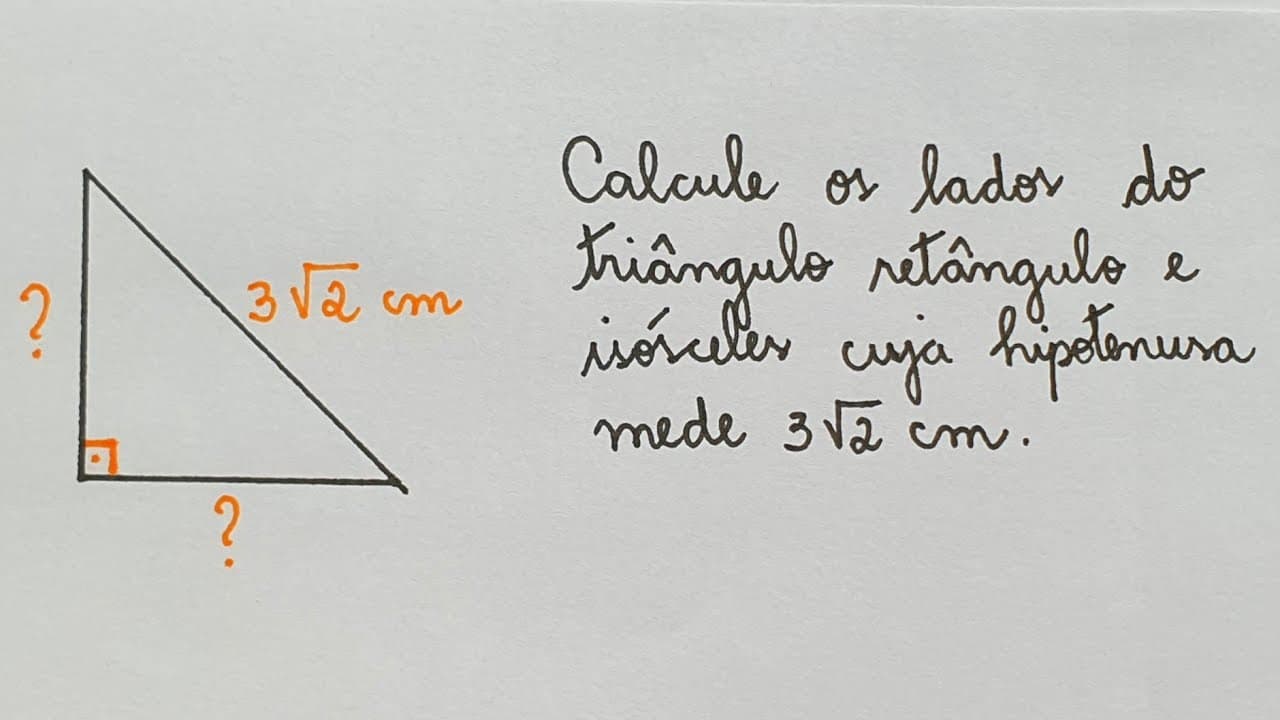 Calcule os lados do
triângulo retângulo e
isósceles cuja hipotenusa
mede 3√2 cm.
?
3√2 cm
?